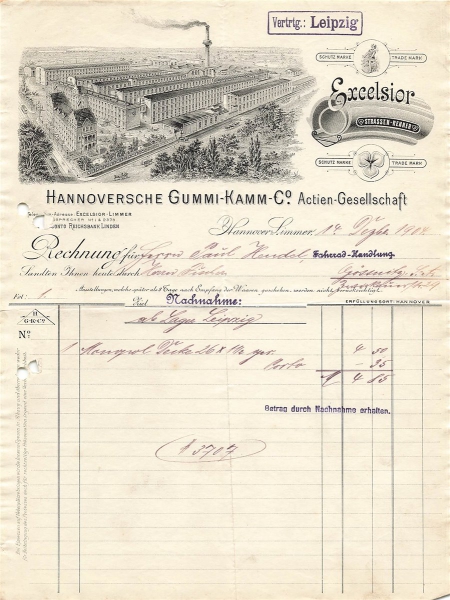 Vertrtg.: Leipzig
SCHUTZ MARKE TRADE MARK
Excelsior
STRASSEN-RENNER
SCHUTZ MARKE TRADE MARK
HANNOVERSCHE GUMMI-KAMM-Co. Actien-Gesellschaft
Telegramm-Adresse: EXCELSIOR-LIMMER
CONTO REICHSBANK LINDEN
Hannover-Limmer, 14
Rechnung für Herrn Paul Hendel Fahrrad-Handlung
Sandten Ihnen heute durch
Ausstellungen, welche später als 8 Tage nach Empfang der Waaren geschehen, werden nicht berücksichtigt.
ERFÜLLUNGSORT: HANNOVER
Ziel Nachnahme:
H
G-K-Co
ab Lager Leipzig
No.
1 Decke 26 x 4 50
Porto - 35
4 85
Betrag durch Nachnahme erhalten.
5707